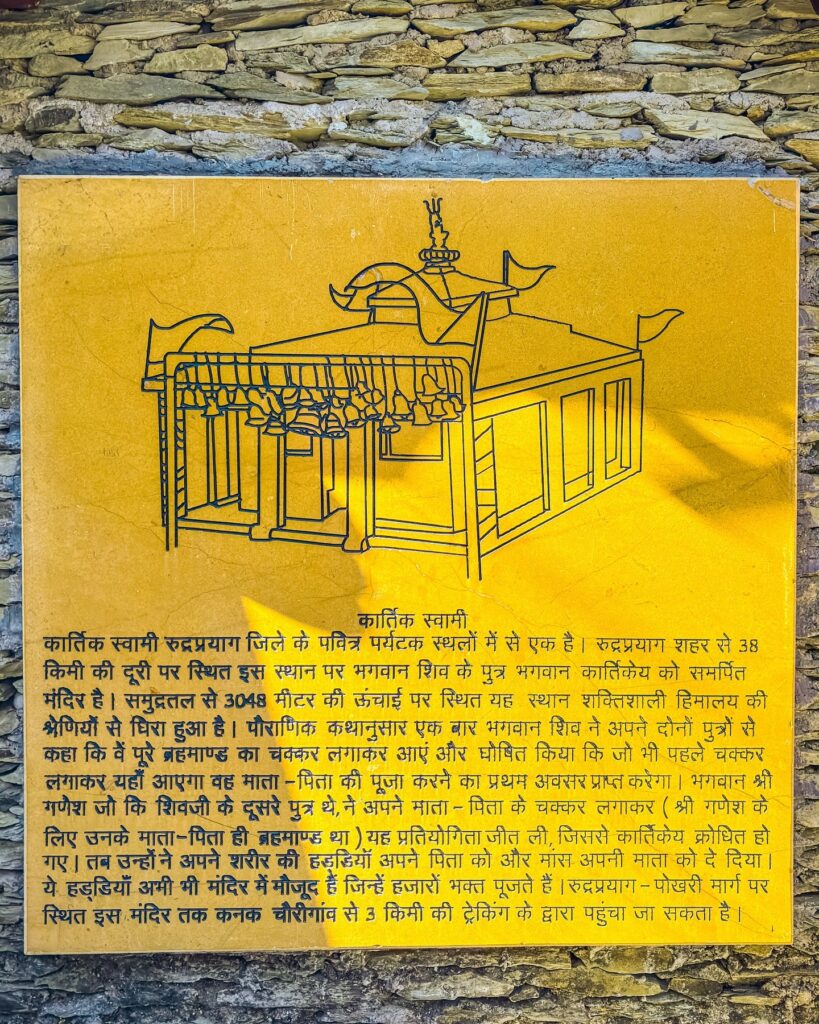 कार्तिक स्वामी
कार्तिक स्वामी रुद्रप्रयाग जिले के पवित्र पर्यटक स्थलों में से एक है। रुद्रप्रयाग शहर से 38
किमी की दूरी पर स्थित इस स्थान पर भगवान शिव के पुत्र भगवान कार्तिकेय को समर्पित
मंदिर है। समुद्रतल से 3048 मीटर की ऊंचाई पर स्थित यह स्थान शक्तिशाली हिमालय की
श्रेणियों से घिरा हुआ है। पौराणिक कथानुसार एक बार भगवान शिव ने अपने दोनों पुत्रों से
कहा कि वें पूरे ब्रहमाण्ड का चक्कर लगाकर आएं और घोषित किया कि जो भी पहले चक्कर
लगाकर यहाँ आएगा वह माता-पिता की पूजा करने का प्रथम अवसर प्राप्त करेगा। भगवान श्री
गणेश जो कि शिवजी के दूसरे पुत्र थे, ने अपने माता-पिता के चक्कर लगाकर (श्री गणेश के
लिए उनके माता-पिता ही ब्रहमाण्ड था) यह प्रतियोगिता जीत ली, जिससे कार्तिकेय क्रोधित हो
गए। तब उन्होंने अपने शरीर की हड्डियाँ अपने पिता को और मांस अपनी माता को दे दिया।
ये हड्डियाँ अभी भी मंदिर में मौजूद हैं जिन्हें हजारों भक्त पूजते हैं। रुद्रप्रयाग-पोखरी मार्ग पर
स्थित इस मंदिर तक कनक चौरीगांव से 3 किमी की ट्रेकिंग के द्वारा पहुंचा जा सकता है।